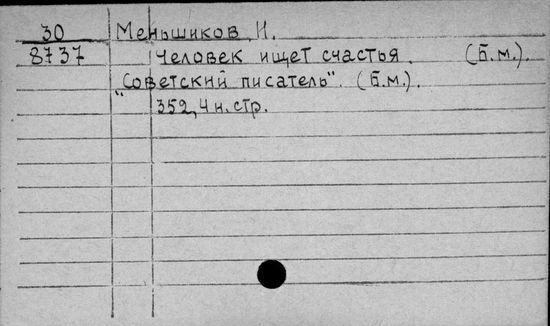 30 Меньшиков И.
8737 Человек ищет счастья. (Б.м.).
"Советский писатель". (Б.м.).
352, 4 н. стр.